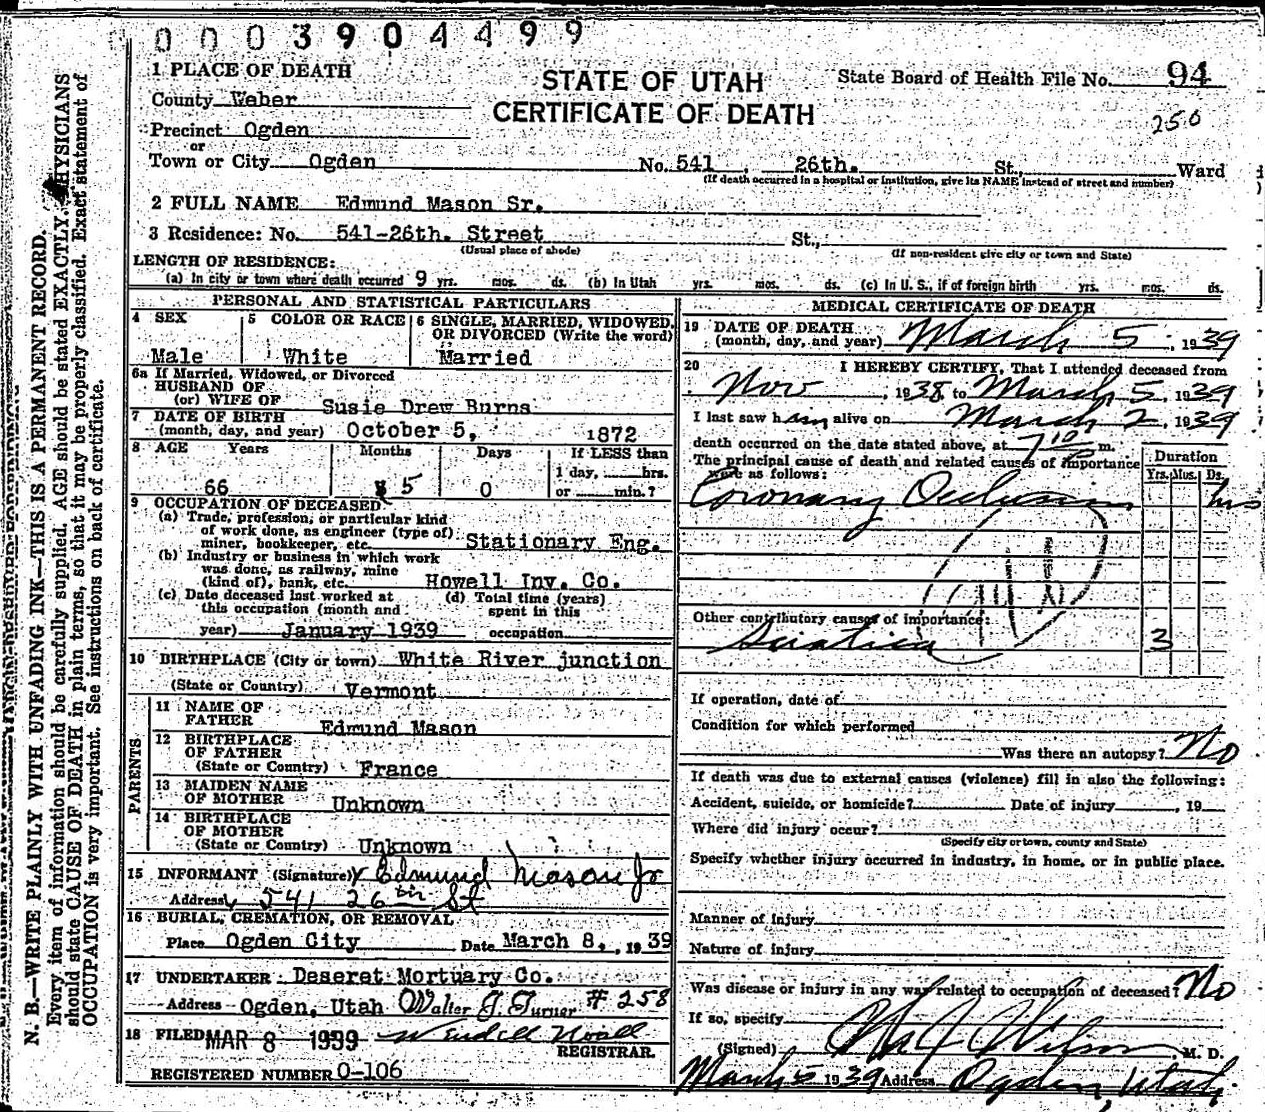 0003904499
1 PLACE OF DEATH
STATE OF UTAH
CERTIFICATE OF DEATH
State Board of Health File No. 94
250
County Weber
Precinct Ogden
or
Town or City Ogden No. 541 26th. St., Ward
(If death occurred in a hospital or institution, give its NAME instead of street and number)
2 FULL NAME Edmund Mason Sr.
3 Residence: No. 541-26th. Street St.,
(Usual place of abode) (If non-resident give city or town and State)
LENGTH OF RESIDENCE:
(a) In city or town where death occurred 9 yrs. mos. ds. (b) In Utah yrs. mos. ds. (c) In U. S., if of foreign birth yrs. mos. ds.
PERSONAL AND STATISTICAL PARTICULARS
4 SEX
Male
5 COLOR OR RACE
White
6 SINGLE, MARRIED, WIDOWED, OR DIVORCED (Write the word)
Married
6a If Married, Widowed, or Divorced
HUSBAND OF
(or) WIFE OF Susie Drew Burns
7 DATE OF BIRTH
(month, day, and year) October 5, 1872
8 AGE Years Months Days If LESS than
1 day, hrs.
66 5 0 or min.?
9 OCCUPATION OF DECEASED
(a) Trade, profession, or particular kind
of work done, as engineer (type of)
miner, bookkeeper, etc. Stationary Eng.
(b) Industry or business in which work
was done, as railway, mine
(kind of), bank, etc. Howell Inv. Co.
(c) Date deceased last worked at (d) Total time (years)
this occupation (month and spent in this
year) January 1939 occupation
10 BIRTHPLACE (City or town) White River junction
(State or Country) Vermont
PARENTS
11 NAME OF
FATHER Edmund Mason
12 BIRTHPLACE
OF FATHER
(State or Country) France
13 MAIDEN NAME
OF MOTHER Unknown
14 BIRTHPLACE
OF MOTHER
(State or Country) Unknown
15 INFORMANT (Signature) Edmund Mason Jr
Address 541 26th St
16 BURIAL, CREMATION, OR REMOVAL
Place Ogden City Date March 8, 1939
17 UNDERTAKER Deseret Mortuary Co.
Address Ogden, Utah Walter J. Turner # 258
18 FILED MAR 8 1939
REGISTRAR.
REGISTERED NUMBER 0-106
MEDICAL CERTIFICATE OF DEATH
19 DATE OF DEATH
(month, day, and year) March 5, 1939
20 I HEREBY CERTIFY, That I attended deceased from
Nov, 1938, to March 5, 1939
I last saw him alive on March 2, 1939
death occurred on the date stated above, at 7 10 m.
The principal cause of death and related causes of importance
were as follows:
Duration
Yrs. Mos. Ds.
Coronary Occlusion hrs
Other contributory causes of importance:
Sciatica 3
If operation, date of
Condition for which performed
Was there an autopsy? No
If death was due to external causes (violence) fill in also the following:
Accident, suicide, or homicide? Date of injury , 19
Where did injury occur?
(Specify city or town, county and State)
Specify whether injury occurred in industry, in home, or in public place.
Manner of Injury
Nature of injury
Was disease or injury in any way related to occupation of deceased? No
If so, specify
(Signed) Wilson, M. D.
March 5 1939 Address Ogden, Utah.
N. B.—WRITE PLAINLY WITH UNFADING INK—THIS IS A PERMANENT RECORD.
Every item of information should be carefully supplied. AGE should be stated EXACTLY. PHYSICIANS
should state CAUSE OF DEATH in plain terms, so that it may be properly classified. Exact statement of
OCCUPATION is very important. See instructions on back of certificate.